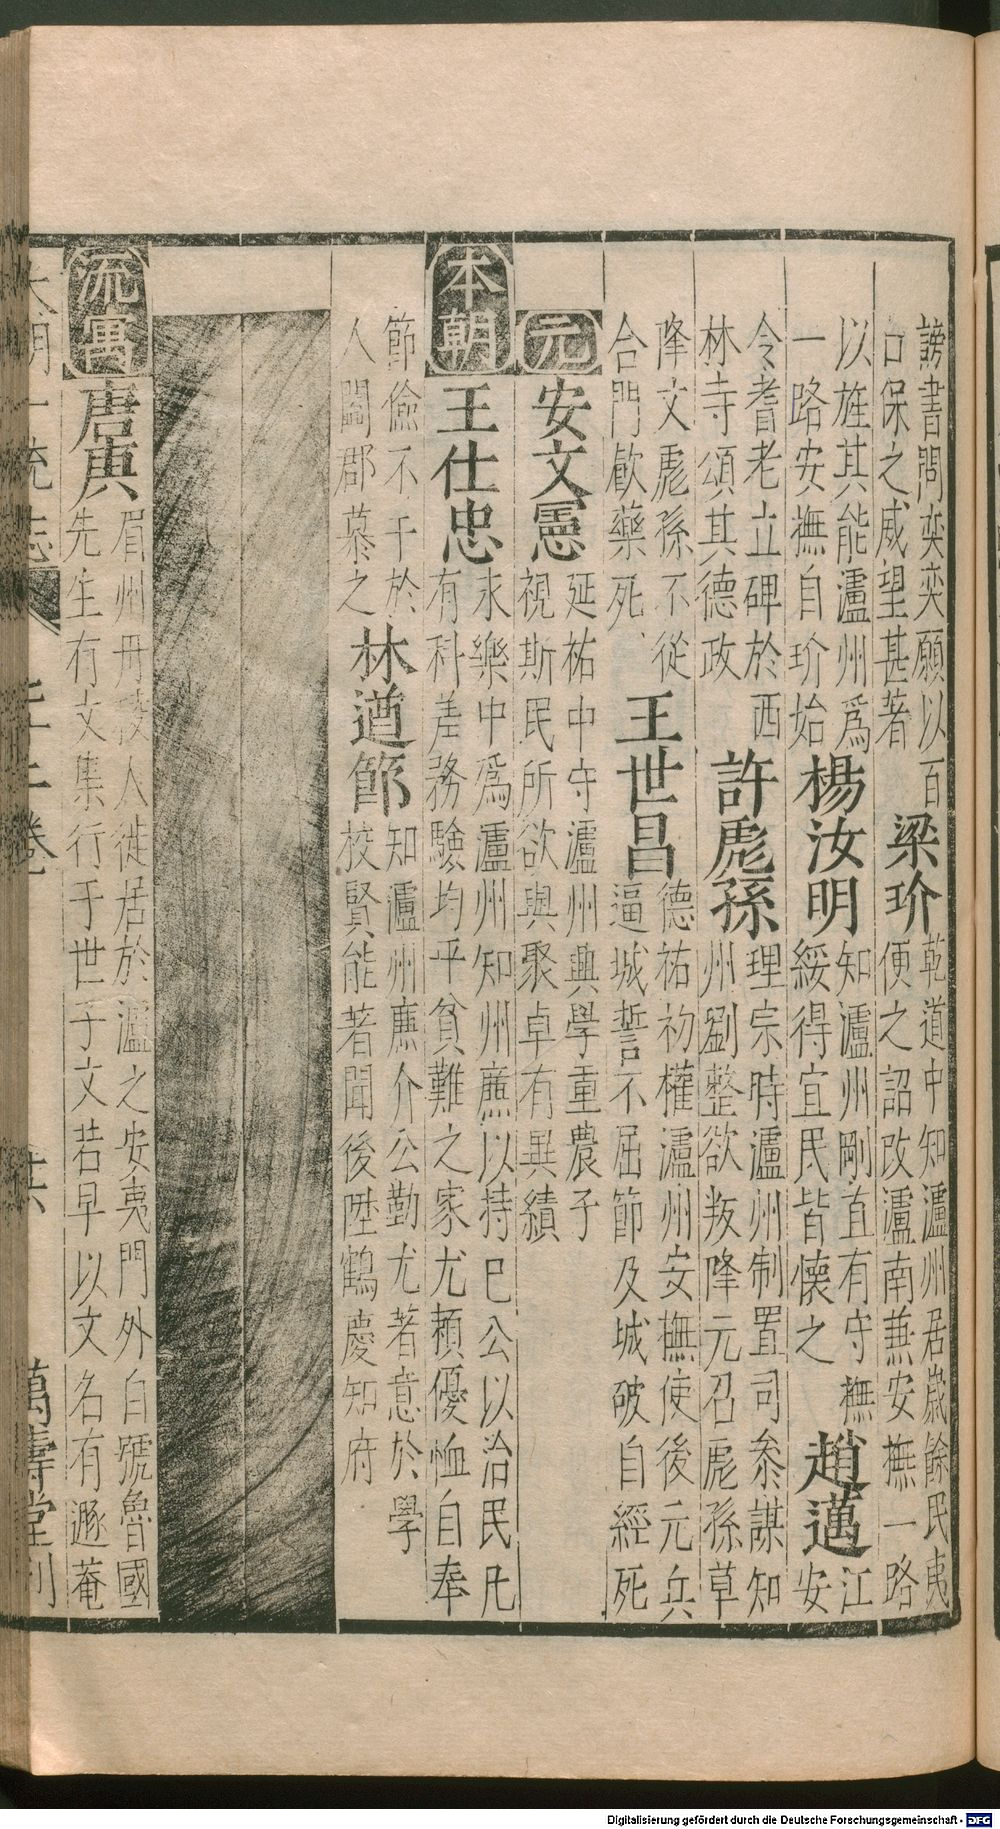 謗書問奕奕願以百
口保之威望甚著
梁玠
乾道中知瀘州居歲餘民夷
便之詔改瀘南兼安撫一路
以旌其能瀘州爲
一路安撫自玠始
楊汝明
知瀘州剛直有守撫
綏得宜民皆懷之
趙邁
江
安
令耆老立碑於西
林寺頌其德政
許彪孫
理宗時瀘州制置司參謀知
州劉整欲叛降元召彪孫草
降文彪孫不從
合門飲藥死
王世昌
德祐初權瀘州安撫使後元兵
逼城誓不屈節及城破自經死
元
安文憲
延祐中守瀘州興學重農子
視斯民所欲與聚卓有異績
本朝
王仕忠
永樂中爲瀘州知州廉以持已公以治民凡
有科差務驗均平貧難之家尤頼優恤自奉
節儉不干於
人闔郡慕之
林遒節
知瀘州廉介公勤尤著意於學
校賢能著聞後陞鶴慶知府
流寓
唐庚
眉州丹稜人徙居於瀘之安夷門外自號魯國
先生有文集行于世子文若早以文名有遯菴
大明一統志
七十二卷
萬壽堂刊
Digitalisierung gefördert durch die Deutsche Forschungsgemeinschaft - DFG